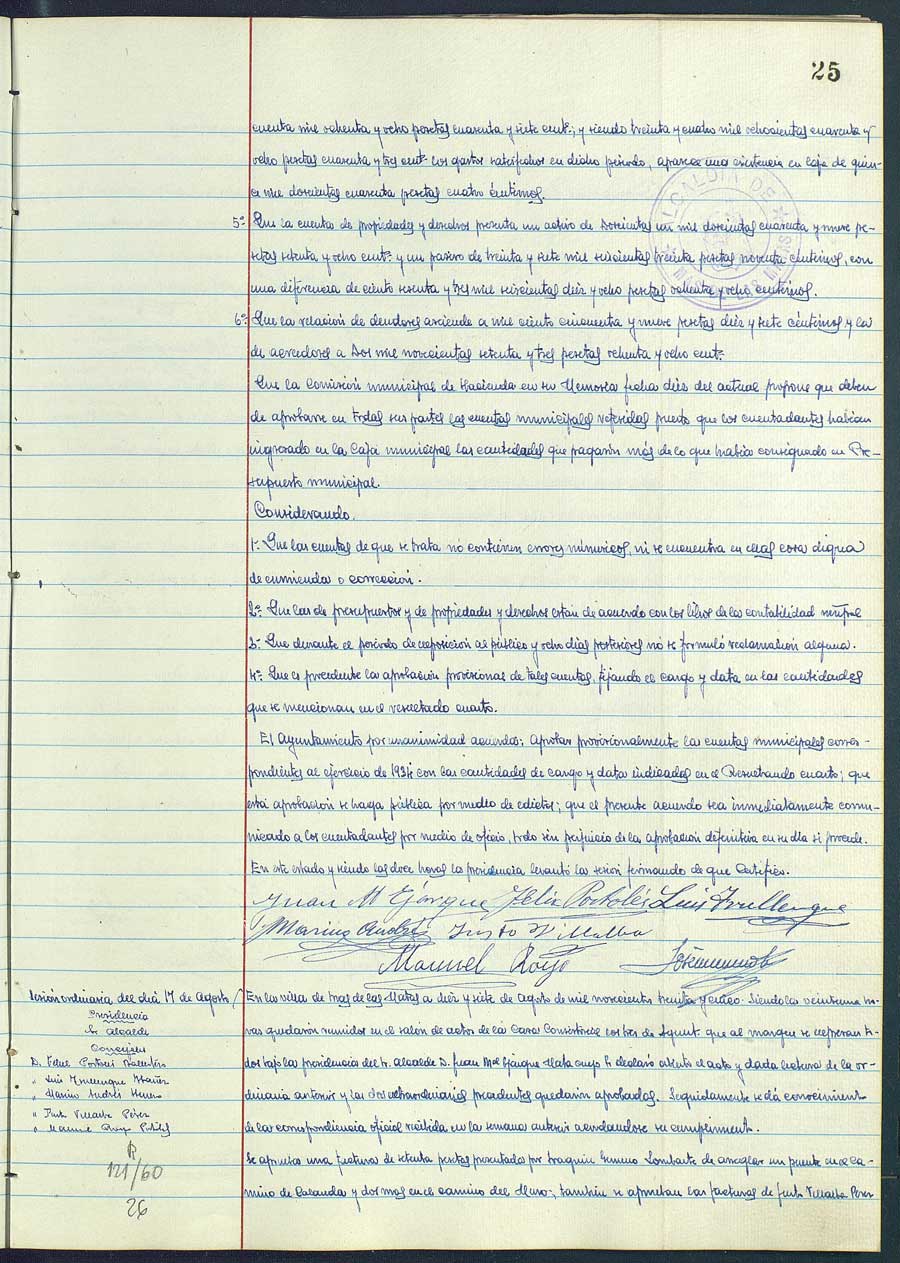 25
cuenta mil ochenta y ocho pesetas cuarenta y siete cent.; y siendo treinta y cuatro mil ochocientas cuarenta y
ocho pesetas cuarenta y tres cent. los gastos satisfechos en dicho período, aparece una existencia en Caja de quin-
ce mil doscientas cuarenta pesetas cuatro céntimos.
5º Que la cuenta de propiedades y derechos presenta un activo de Doscientas un mil doscientas cuarenta y nueve pe-
setas setenta y ocho cent. y un pasivo de treinta y siete mil seiscientas treinta pesetas noventa céntimos, con
una diferencia de ciento sesenta y tres mil seiscientas diez y ocho pesetas ochenta y ocho centimos.
6º Que la relación de deudores asciende a mil ciento cincuenta y nueve pesetas diez y siete céntimos y la
de acreedores a Dos mil novecientas setenta y tres pesetas ochenta y ocho cent.
Que la Comisión municipal de Hacienda en su Memoria fecha diez del actual propone que deben
de aprobarse en todas sus partes las cuentas municipales referidas puesto que los cuentadantes habian
ingresado en la Caja municipal las cantidades que pagaron más de lo que habia consignado en Pre-
supuesto municipal.
Considerando.
1º Que las cuentas de que se trata no contienen errores númericos, ni se encuentra en ellas cosa digna
de enmienda o corrección.
2º Que las de presupuestos y de propiedades y derechos están de acuerdo con los libros de la contabilidad munpal
3º Que durante el periodo de exposición al público y ocho días posteriores no se formuló reclamación alguna.
4º Que es procedente la aprobación provisional de tales cuentas, fijando el cargo y data en las cantidades
que se mencionan en el resultado cuarto.
El Ayuntamiento por unanimidad acuerda: Aprobar provisionalmente las cuentas municipales corres-
pondientes al ejercicio de 1934 con las cantidades de cargo y data indicadas en el Resultando cuarto; que
esta aprobación se haga pública por medio de edictos; que el presente acuerdo sea inmediatamente comu-
nicado a los cuentadantes por medio de oficio, todo sin perjuicio de la aprobación definitiva en su dia si procede.
En este estado y siendo las doce horas la presidencia levantó la sesión firmando de que Certifico.
Juan Mª Gjargue Felix Portolés Luis Trullenque
Marino Andrés Justo Villalba
Manuel Royo
Sesión ordinaria del día 17 de Agosto
Presidencia
Sr. Alcalde
Concejales
D. Felix Portolés
" Luis Trullenque
" Marino Andrés
" Justo Villalba Pérez
" Manuel Royo
R
121/60
26
En la villa de Mas de las Matas a diez y siete de Agosto de mil novecientos treinta y cinco. Siendo las veintiuna ho-
ras quedaron reunidos en el salón de actos de la Casa Consistorial los Sres. de Ayunt. que al margen se expresan to-
dos bajo la presidencia del Sr. Alcalde D. Juan Mel se declaró abierto el acto y dada lectura de la or-
dinaria anterior y las dos extraordinarias precedentes quedaron aprobadas. Seguidamente se dá conocimiento
de la correspondencia oficial recibida en la semana anterior acordandose su cumplimiento.
Se aprueba una factura de setenta pesetas presentada por Joaquin Lombarte de arreglar un puente en el ca-
mino de Calanda y dos mas en el camino del; también se aprueban las facturas de Justo Villalba Pérez
ALCALDIA DE
MAS DE LAS MATAS